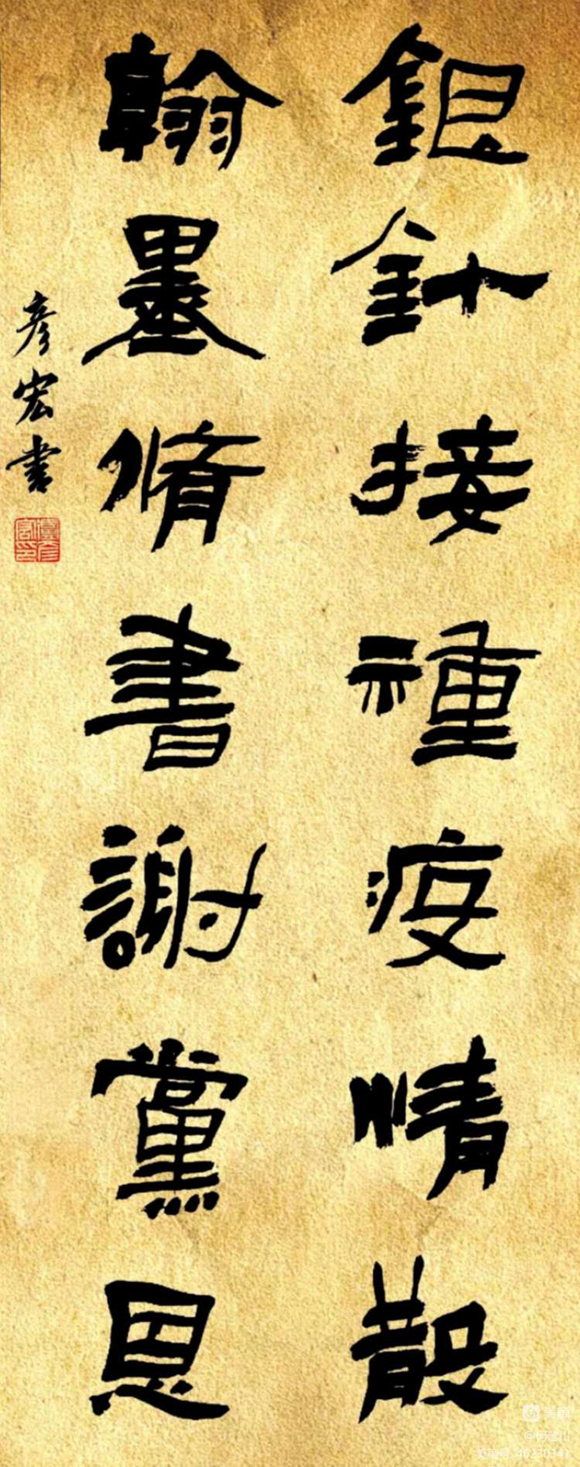 銀針接種疫情散
翰墨脩書謝黨恩
彦宏書